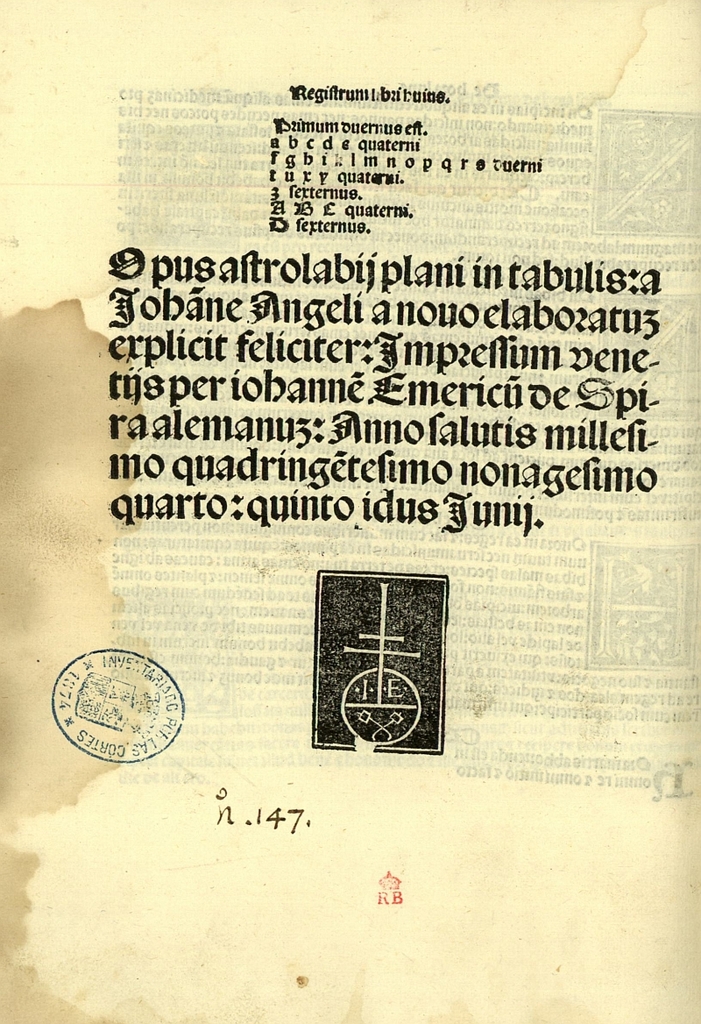 Registrum libri huius.
Primum duernus est.
a b c d e quaterni
f g h i k l m n o p q r s duerni
t u x y quaterni.
z sexternus.
A B C quaterni.
D sexternus.
Opus astrolabij plani in tabulis: a
Johãne Angeli a nouo elaboratuz
explicit feliciter: Impressum vene-
tijs per iohannẽ Emericũ de Spi-
ra alemanuz: Anno salutis millesi-
mo quadringẽtesimo nonagesimo
quarto: quinto idus Junij.
·I· E
INVENTARIADO POR LAS CORTES
* 1874 *
n.º 147.
RB